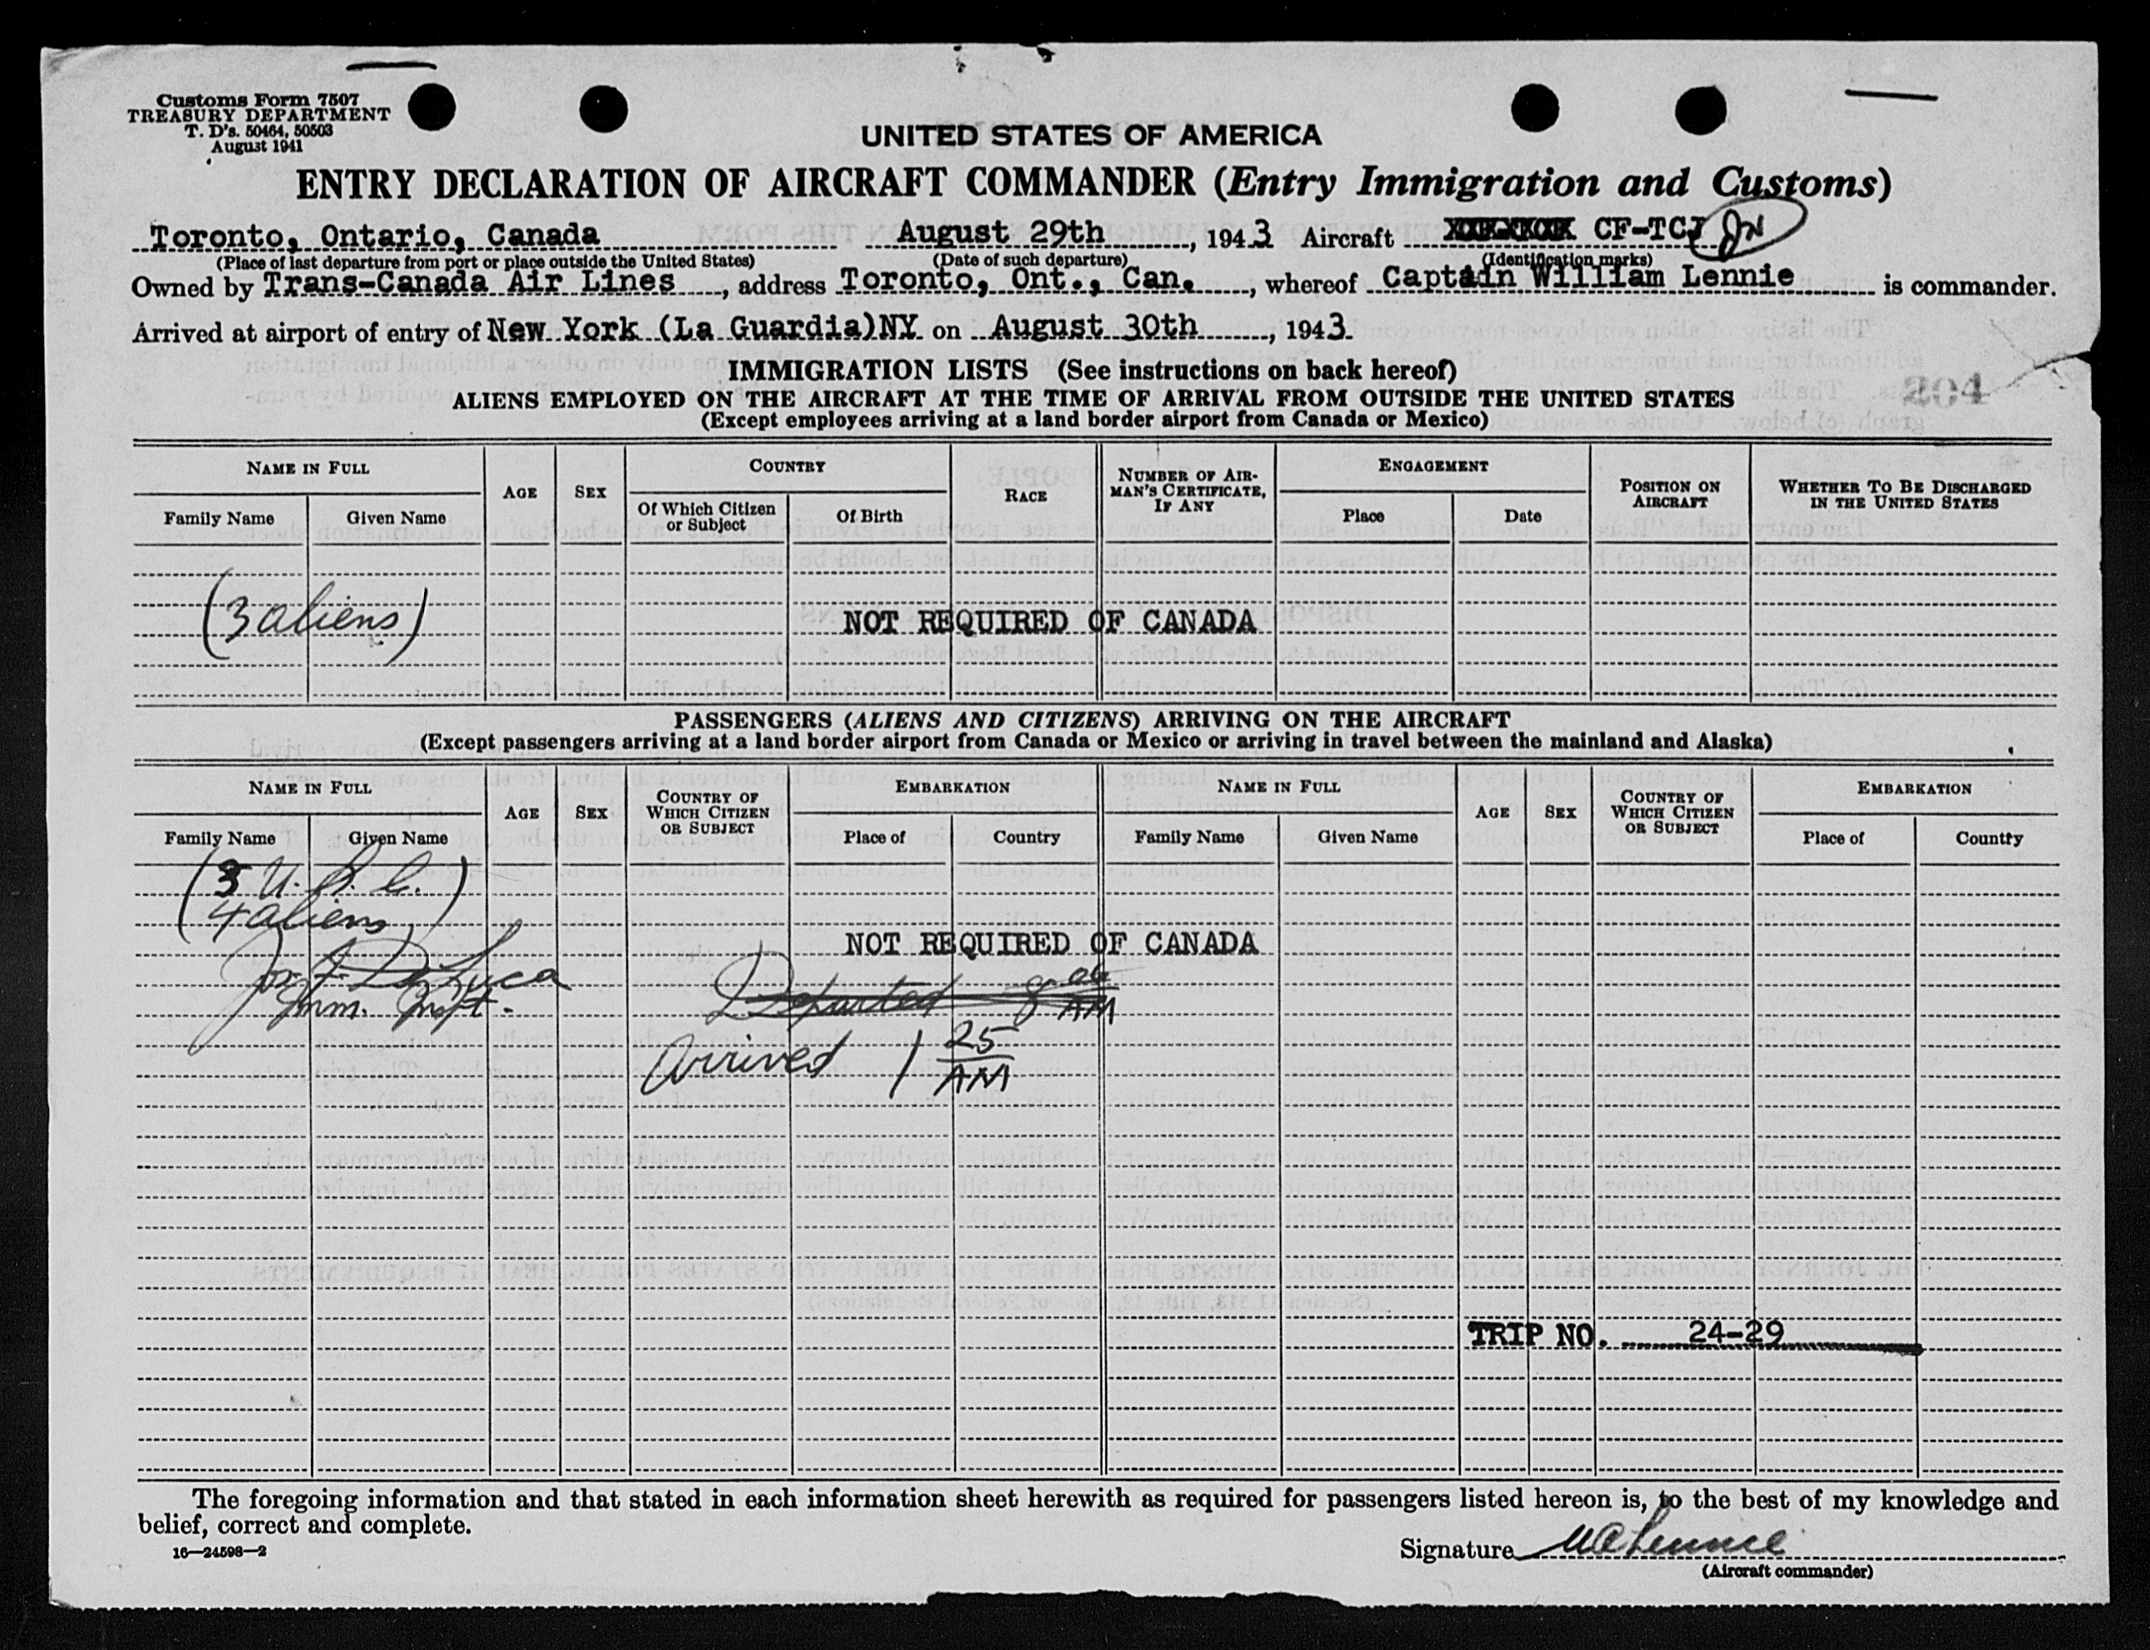 Customs Form 7507
TREASURY DEPARTMENT
T. D's. 50464, 50503
August 1941
UNITED STATES OF AMERICA
ENTRY DECLARATION OF AIRCRAFT COMMANDER (Entry Immigration and Customs)
Toronto, Ontario, Canada August 29th, 1943 Aircraft CF-TCJ JN
(Place of last departure from port or place outside the United States) (Date of such departure) (Identification marks)
Owned by Trans-Canada Air Lines, address Toronto, Ont., Can., whereof Captain William Lennie is commander.
Arrived at airport of entry of New York (La Guardia)NY on August 30th, 1943
IMMIGRATION LISTS (See instructions on back hereof)
204
ALIENS EMPLOYED ON THE AIRCRAFT AT THE TIME OF ARRIVAL FROM OUTSIDE THE UNITED STATES
(Except employees arriving at a land border airport from Canada or Mexico)
NAME IN FULL AGE SEX COUNTRY RACE NUMBER OF AIRMAN'S CERTIFICATE, IF ANY ENGAGEMENT POSITION ON AIRCRAFT WHETHER TO BE DISCHARGED IN THE UNITED STATES
Family Name Given Name Of Which Citizen or Subject Of Birth Place Date
(3 aliens)
NOT REQUIRED OF CANADA
PASSENGERS (ALIENS AND CITIZENS) ARRIVING ON THE AIRCRAFT
(Except passengers arriving at a land border airport from Canada or Mexico or arriving in travel between the mainland and Alaska)
NAME IN FULL AGE SEX COUNTRY OF WHICH CITIZEN OR SUBJECT EMBARKATION NAME IN FULL AGE SEX COUNTRY OF WHICH CITIZEN OR SUBJECT EMBARKATION
Family Name Given Name Place of Country Family Name Given Name Place of Country
(3 U.S.C.)
(4 aliens)
NOT REQUIRED OF CANADA
Jos. F. De Luca
Imm. Inspt.
Departed 8 06 AM
Arrived 1 25 AM
TRIP NO. 24-29
The foregoing information and that stated in each information sheet herewith as required for passengers listed hereon is, to the best of my knowledge and
belief, correct and complete.
16—24598—2
Signature W A Lennie
(Aircraft commander)